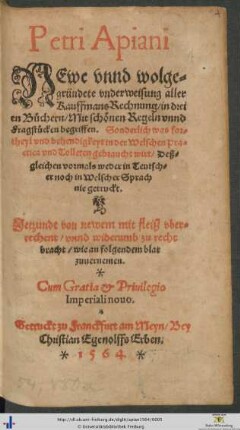 Petri Apiani
Newe vnnd wolge-
gründete vnderweisung aller
Kauffmans Rechnung/ in drei
en Büchern/ Mit schönen Regeln vnnd
Fragstücken begriffen. Sonderlich was for-
theyl vnd behendigkeyt in der Welschen prac-
ctica vnd Tolleten gebraucht wirt/ Deß-
gleichen vormals weder in Teutsch-
er noch in Welscher Sprach
nie getruckt.
Jetzunde von newem mit fleiß vber-
rechent/ vnnd widerumb zu recht
bracht/ wie an folgendem blat
zuuernemen.
*
Cum Gratia & Priuilegio
Imperiali nouo.
Getruckt zu Franckfurt am Meyn/ Bey
Christian Egenolffs Erben.
* 1 5 6 4. *
© Universitätsbibliothek Freiburg